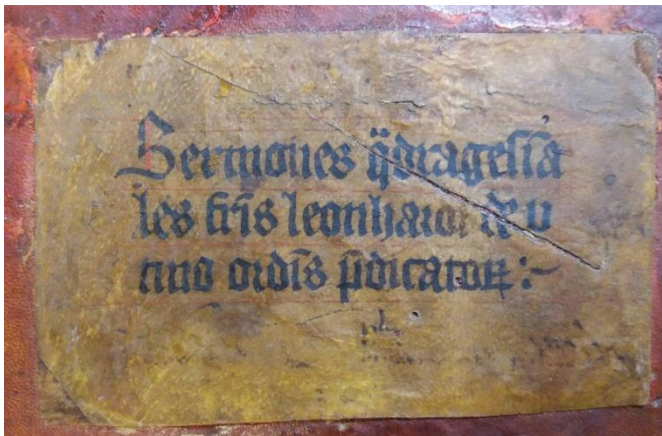 Sermones q̄dragesīa
les fr̄is leonhardi de v
tino ordīs p̄dicatoꝝ :~